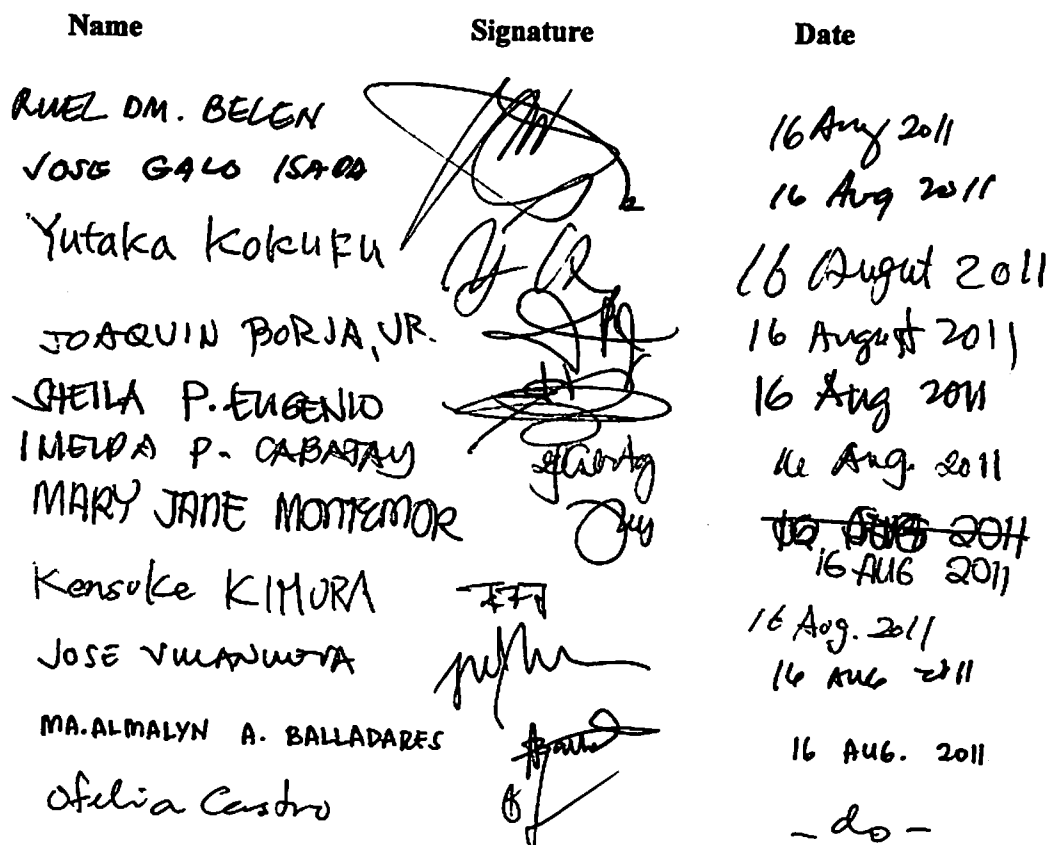 Name Signature Date
RUEL DM. BELEN 16 Aug 2011
JOSE GALO ISADA 16 Aug 2011
Yutaka KOKUFU 16 Augut 2011
JOAQUIN BORJA, JR. 16 August 2011
SHEILA P. EUGENIO 16 Aug 2011
IMELDA P. CABATAY 16 Aug. 2011
MARY JANE MONTEMOR 16 AUG 2011
16 AUG 2011
Kensuke KIMURA 16 Aug. 2011
JOSE VILLANUEVA 16 AUG 2011
MA. ALMALYN A. BALLADARES 16 AUG. 2011
Ofelia Castro - do -